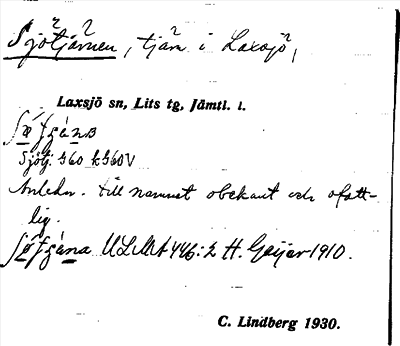 Sjötjärnen, tjärn i Laxsjö,
Laxsjö sn, Lits tg, Jämtl. l.
Sjötj. 960 k960V
Anledn. till namnet obekant och ofatt-
lig.
ULMA 446:2 H. Geijer 1910.
C. Lindberg 1930.